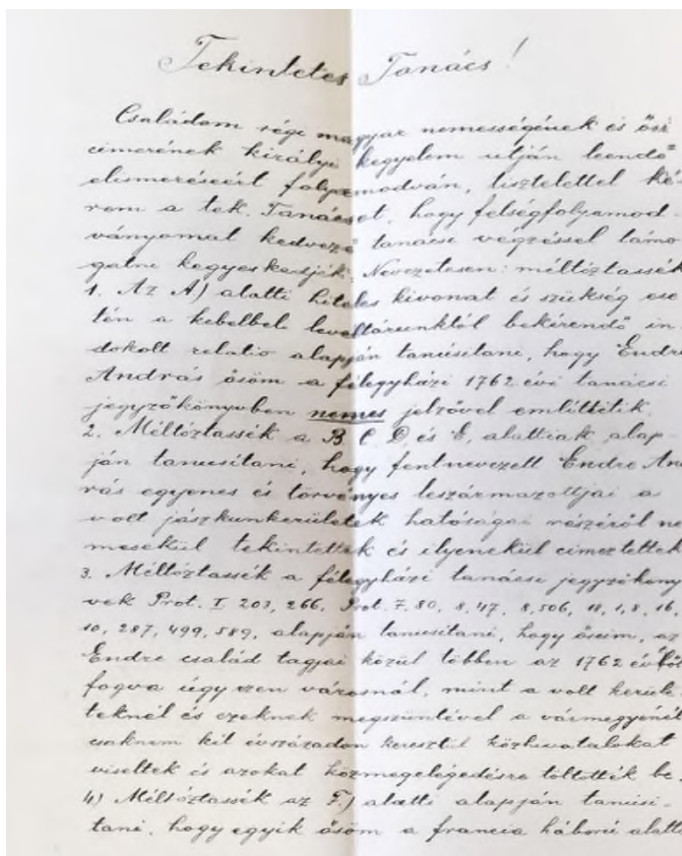 Tekintetes Tanács!
Családom régi magyar nemességének és ősi
címerének királyi kegyelem utján leendő
elismeréseért folyamodván, tisztelettel ké-
rem a tek. Tanácsot, hogy felségfolyamod-
ványomat kedvező tanácsi végzéssel támo
gatni kegyeskedjék. Nevezetesen: méltóztassék
1. Az A) alatti hiteles kivonat és szükség ese
tén a kebelbeli levéltárunktól bekérendő in
dokolt relatio alapján tanúsítani, hogy Endre
András ősöm a félegyházi 1762 évi tanácsi
jegyzőkönyvben nemes jelzővel említtetik.
2. Méltóztassék a B C D és E, alattiak alap-
ján tanusítani, hogy fentnevezett Endre And
rás egyenes és törvényes leszármazottjai a
volt jászkunkerületek hatóságai részéről ne
mesekül tekintettek és ilyenekül címeztettek
3. Méltóztassék a félegyházi tanácsi jegyzőköny
vek Prot. I 203, 266, Prot. 7. 80, 8, 47, 8, 506, 18, 1, 8, 16,
10, 287, 499, 589, alapján tanusítani, hogy őseim, az
Endre család tagjai közül többen az 1762 évből
fogva úgy ezen városnál, mint a volt kerüle
teknél és ezeknek megszüntével a vármegyénél
csaknem két évszázadon keresztül közhivatalokat
viseltek és azokat közmegelégedésre töltötték be.
4) Méltóztassék az F.) alatti alapján tanúsi-
tani, hogy egyik ősöm a francia háború alatt